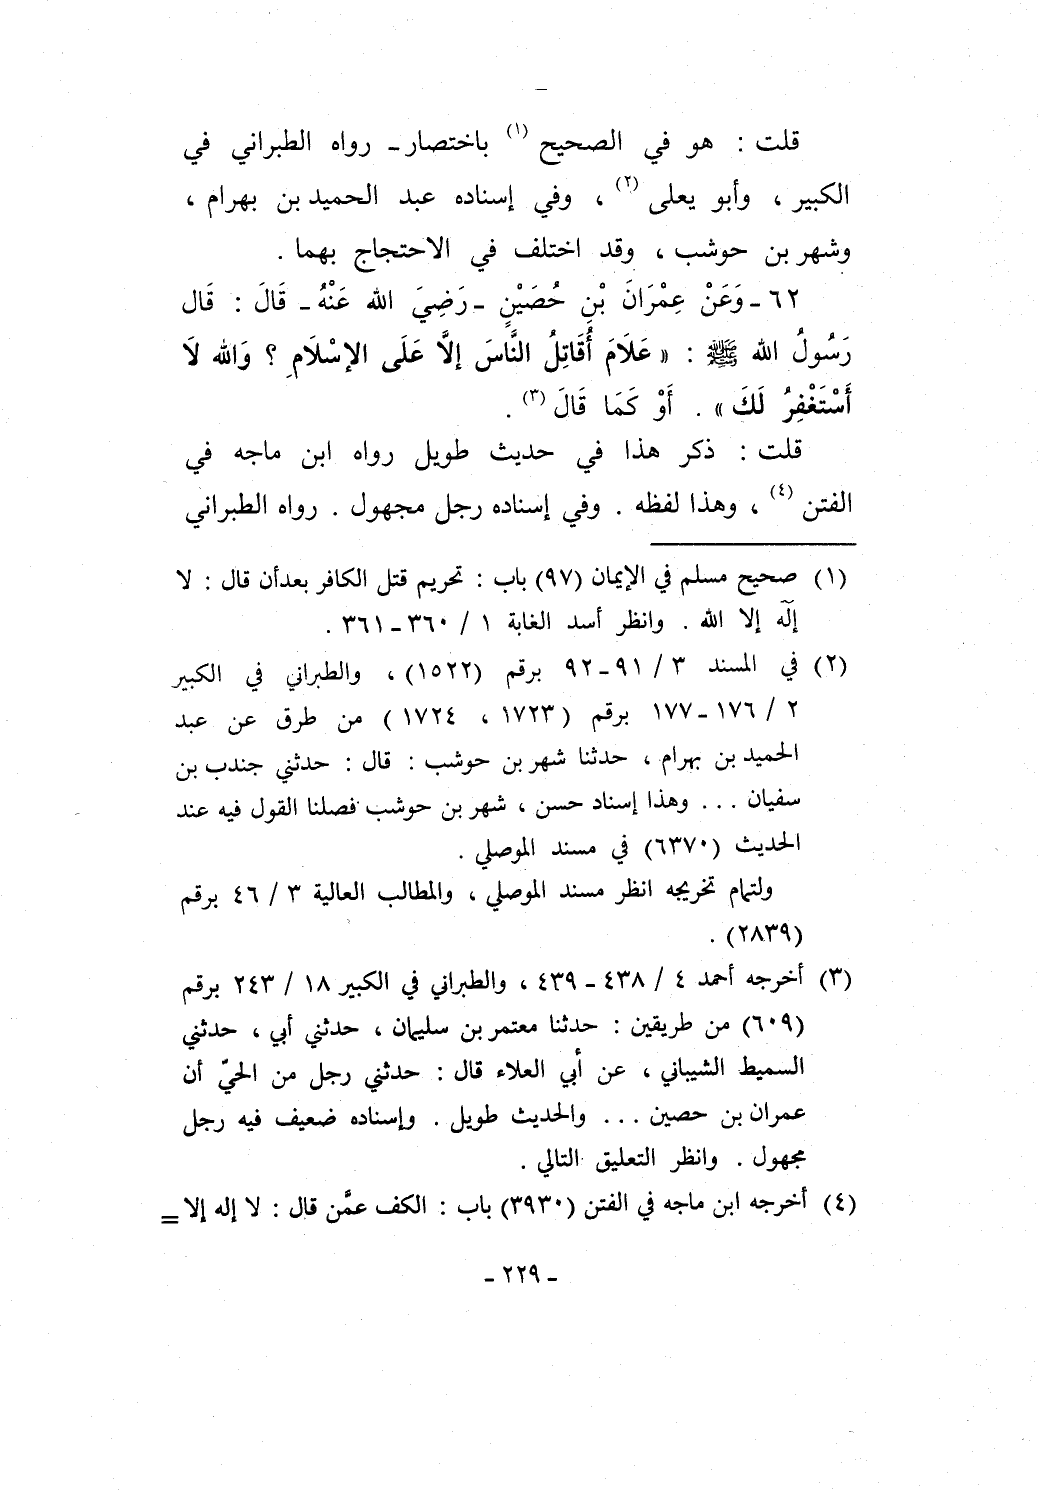 قلت : هو في الصحيح (١) باختصار - رواه الطبراني في
الكبير ، وأبو يعلى (٢) ، وفي إسناده عبد الحميد بن بهرام ،
وشهر بن حوشب ، وقد اختلف في الاحتجاج بهما .
٦٢ - وَعَنْ عِمْرَانَ بْنِ حُصَيْنٍ - رَضِيَ الله عَنْهُ - قَالَ : قَال
رَسُولُ الله ﷺ : « عَلَامَ أُقَاتِلُ النَّاسَ إلَّا عَلَى الإسْلَامِ ؟ وَالله لَا
أَسْتَغْفِرُ لَكَ » . أَوْ كَمَا قَالَ (٣) .
قلت : ذكر هذا في حديث طويل رواه ابن ماجه في
الفتن (٤) ، وهذا لفظه . وفي إسناده رجل مجهول . رواه الطبراني
(١) صحيح مسلم في الإيمان (٩٧) باب : تحريم قتل الكافر بعدأن قال : لا
إلٓه إلا الله . وانظر أسد الغابة ١ / ٣٦٠ - ٣٦١ .
(٢) في المسند ٣ / ٩١ - ٩٢ برقم (١٥٢٢) ، والطبراني في الكبير
٢ / ١٧٦ - ١٧٧ برقم (١٧٢٣ ، ١٧٢٤) من طرق عن عبد
الحميد بن بهرام ، حدثنا شهر بن حوشب : قال : حدثني جندب بن
سفيان ... وهذا إسناد حسن ، شهر بن حوشب فصلنا القول فيه عند
الحديث (٦٣٧٠) في مسند الموصلي .
ولتمام تخريجه انظر مسند الموصلي ، والمطالب العالية ٣ / ٤٦ برقم
(٢٨٣٩) .
(٣) أخرجه أحمد ٤ / ٤٣٨ - ٤٣٩ ، والطبراني في الكبير ١٨ / ٢٤٣ برقم
(٦٠٩) من طريقين : حدثنا معتمر بن سليمان ، حدثني أبي ، حدثني
السميط الشيباني ، عن أبي العلاء قال : حدثني رجل من الحيّ أن
عمران بن حصين ... والحديث طويل . وإسناده ضعيف فيه رجل
مجهول . وانظر التعليق التالي .
(٤) أخرجه ابن ماجه في الفتن (٣٩٣٠) باب : الكف عمَّن قال : لا إله إلا =
- ٢٢٩ -